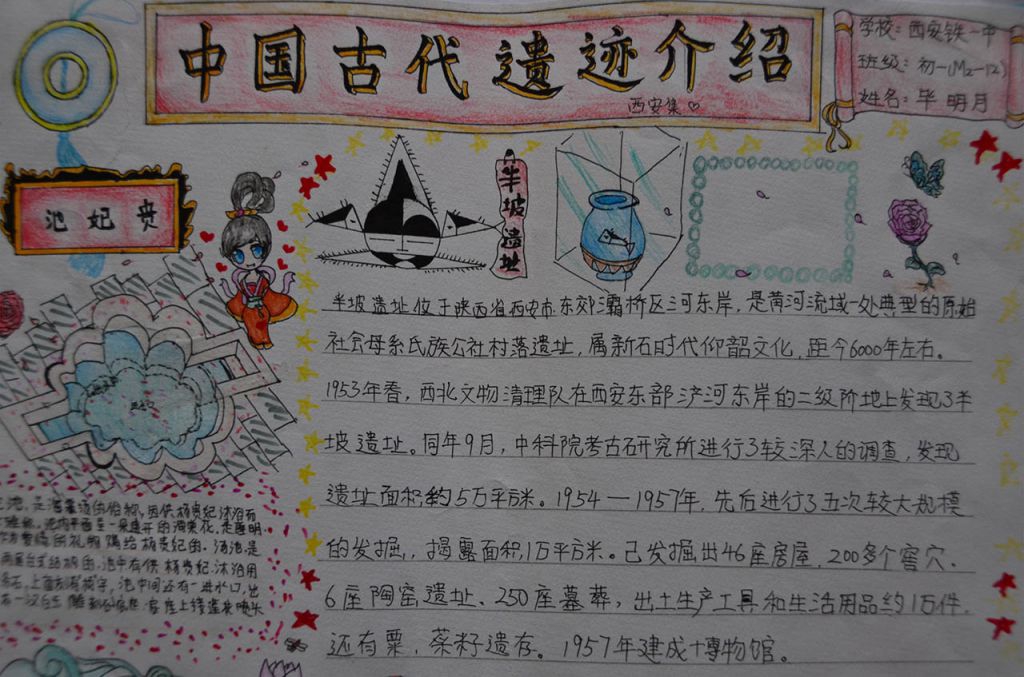 中国古代遗迹介绍
西安集♡
学校：西安铁一中
班级：初一(M2-12)
姓名：毕明月
池妃贵
半坡遗址
半坡遗址位于陕西省西安市东郊灞桥区浐河东岸，是黄河流域一处典型的原始
社会母系氏族公社村落遗址，属新石时代仰韶文化，距今6000年左右。
1953年春，西北文物清理队在西安东部浐河东岸的二级阶地上发现了半
坡遗址。同年9月，中科院考古研究所进行了较深入的调查，发现
遗址面积约5万平方米。1954—1957年，先后进行了五次较大规模
的发掘，揭露面积1万平方米。已发掘出46座房屋、200多个窖穴、
6座陶窑遗址、250座墓葬，出土生产工具和生活用品约1万件，
还有粟、菜籽遗存。1957年建成博物馆。
池，是海棠池的俗称，因供杨贵妃沐浴而
池内平面呈一朵盛开的海棠花，是唐明
的礼物赐给杨贵妃的。汤池是
两层台式结构的，池中有供杨贵妃沐浴用
池中间还有一进水口，出
莲花喷头